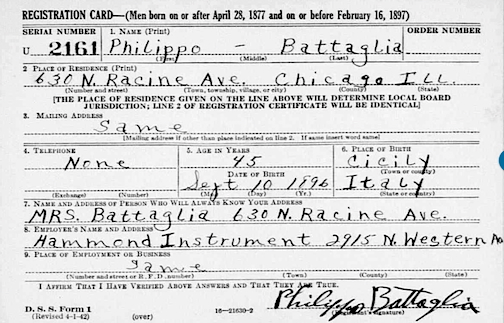 REGISTRATION CARD—(Men born on or after April 28, 1877 and on or before February 16, 1897)
SERIAL NUMBER 1. NAME (Print)
U 2161 Philippo – Battaglia
(First) (Middle) (Last)
2 PLACE OF RESIDENCE (Print)
630 N. Racine Ave. Chicago Ill.
(Number and street) (Town, township, village, or city) (County) (State)
[THE PLACE OF RESIDENCE GIVEN ON THE LINE ABOVE WILL DETERMINE LOCAL BOARD
JURISDICTION; LINE 2 OF REGISTRATION CERTIFICATE WILL BE IDENTICAL]
3. MAILING ADDRESS
Same
[Mailing address if other than place indicated on line 2. If same insert word same]
4. TELEPHONE 5. AGE IN YEARS 6. PLACE OF BIRTH
None 45 Cicily
DATE OF BIRTH (Town or county)
Sept 10 1896 Italy
(Exchange) (Number) (Mo.) (Day) (Yr.) (State or country)
7. NAME AND ADDRESS OF PERSON WHO WILL ALWAYS KNOW YOUR ADDRESS
MRS. Battaglia 630 N. Racine Ave.
8. EMPLOYER'S NAME AND ADDRESS
Hammond Instrument 2915 N. Western
9. PLACE OF EMPLOYMENT OR BUSINESS
Same
(Number and street or R. F. D. number) (Town) (County) (State)
I AFFIRM THAT I HAVE VERIFIED ABOVE ANSWERS AND THAT THEY ARE TRUE.
Philippo Battaglia
D. S. S. Form 1 (Registrant's signature)
(Revised 4-1-42) (over) 16—21630-2